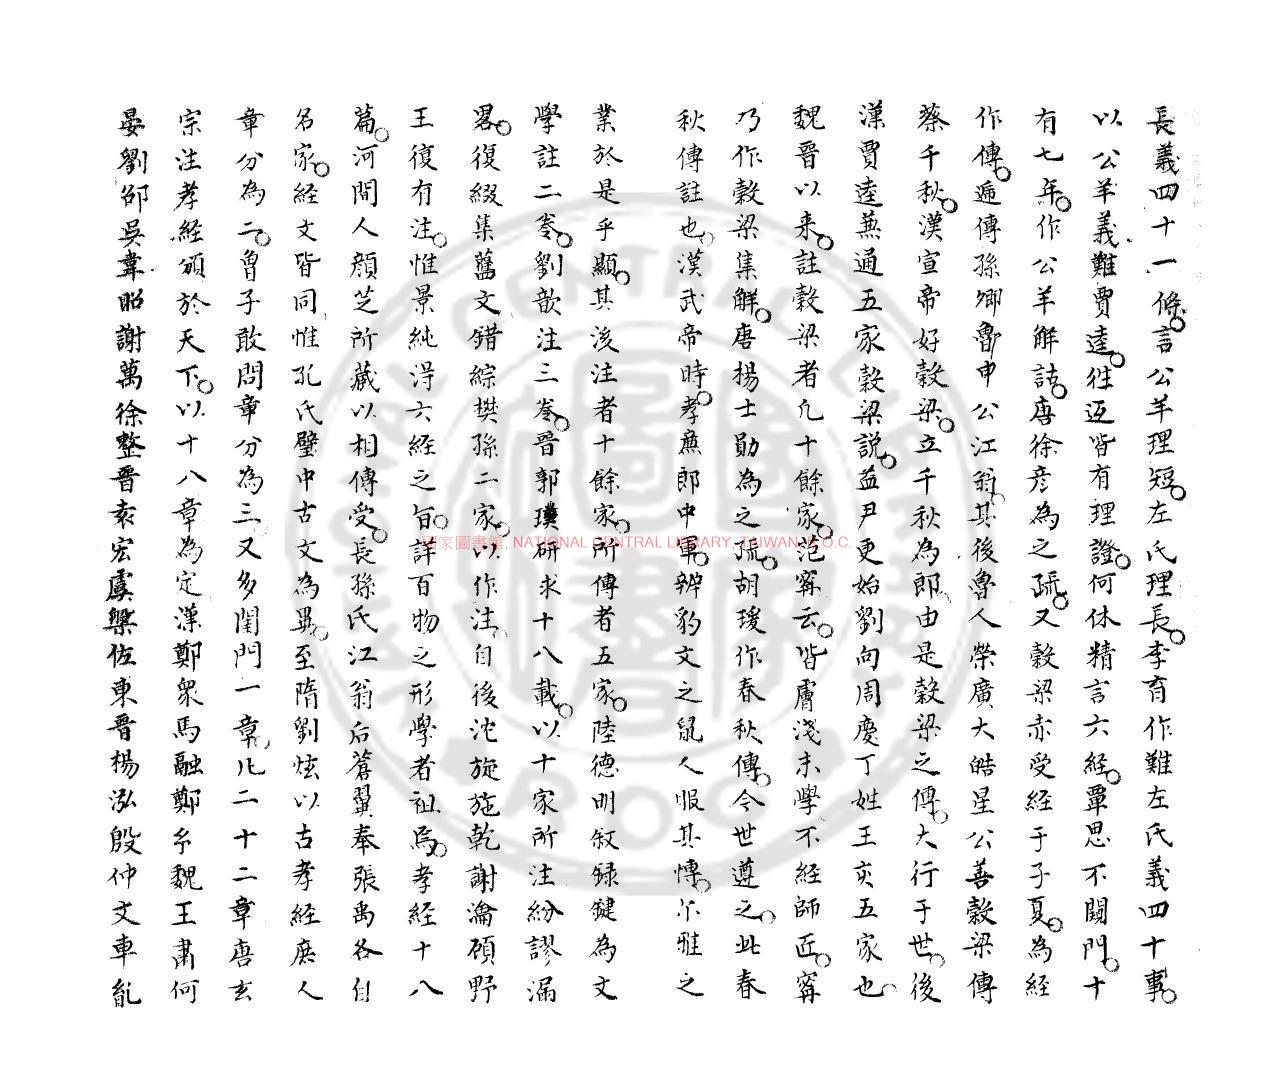 長義四十一條言公羊理短左氏理長李育作難左氏義四十事
以公羊義難賈逵往返皆有理證何休精言六經覃思不闚門十
有七年作公羊解詁唐徐彦為之疏又穀梁赤受經于子夏為經
作傳遍傳孫卿魯申公江翁其後魯人榮廣大皓星公善穀梁傳
蔡千秋漢宣帝好穀梁立千秋為郎由是穀梁之傳大行于世後
漢賈逵蕪通五家穀梁説益尹更始劉向周慶丁姓王亥五家也
魏晉以来註穀梁者凡十餘家范寗云皆膚淺末學不經師匠寗
乃作穀梁集解唐楊士勛為之疏胡瑗作春秋傳今世遵之此春
秋傳註也漢武帝時孝廉郎中軍辨豹文之鼠人服其愽尒雅之
業於是乎顯其後注者十餘家所傳者五家陸德明叙錄鍵為文
學註二卷劉歆注三卷晉郭璞研求十八載以十家所注紛謬漏
畧復綴集舊文錯綜樊孫二家以作注自後沈旋施乾謝瀹顧野
王復有注惟景純淂六經之旨詳百物之形學者祖焉孝經十八
篇河間人顔芝所藏以相傳受長孫氏江翁后蒼翼奉張禹各自
名家經文皆同惟孔氏壁中古文為異至隋劉炫以古孝經庶人
章分為二曾子敢問章分為三又多閨門一章凡二十二章唐玄
宗注孝經頒於天下以十八章為定漢鄭衆馬融鄭玄魏王肅何
晏劉邵吳韋昭謝萬徐整晋袁宏虞槃佐東晋楊泓殷仲文車胤
國家圖書館, NATIONAL CENTRAL LIBRARY, TAIWAN, R.O.C.